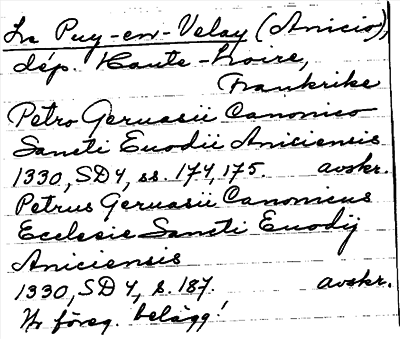 Le Puy-en-Velay (Anicio),
dép. Haute-Loire,
Frankrike
Petro Geruasii Canonico
Sancti Euodii Aniciensis
1330, SD 4, ss. 174, 175. avskr.
Petrus Geruasii Canonicus
Ecclesie Sancti Euodij
Aniciensis
1330, SD 4, s. 187. avskr.
Nr föreg. belägg!